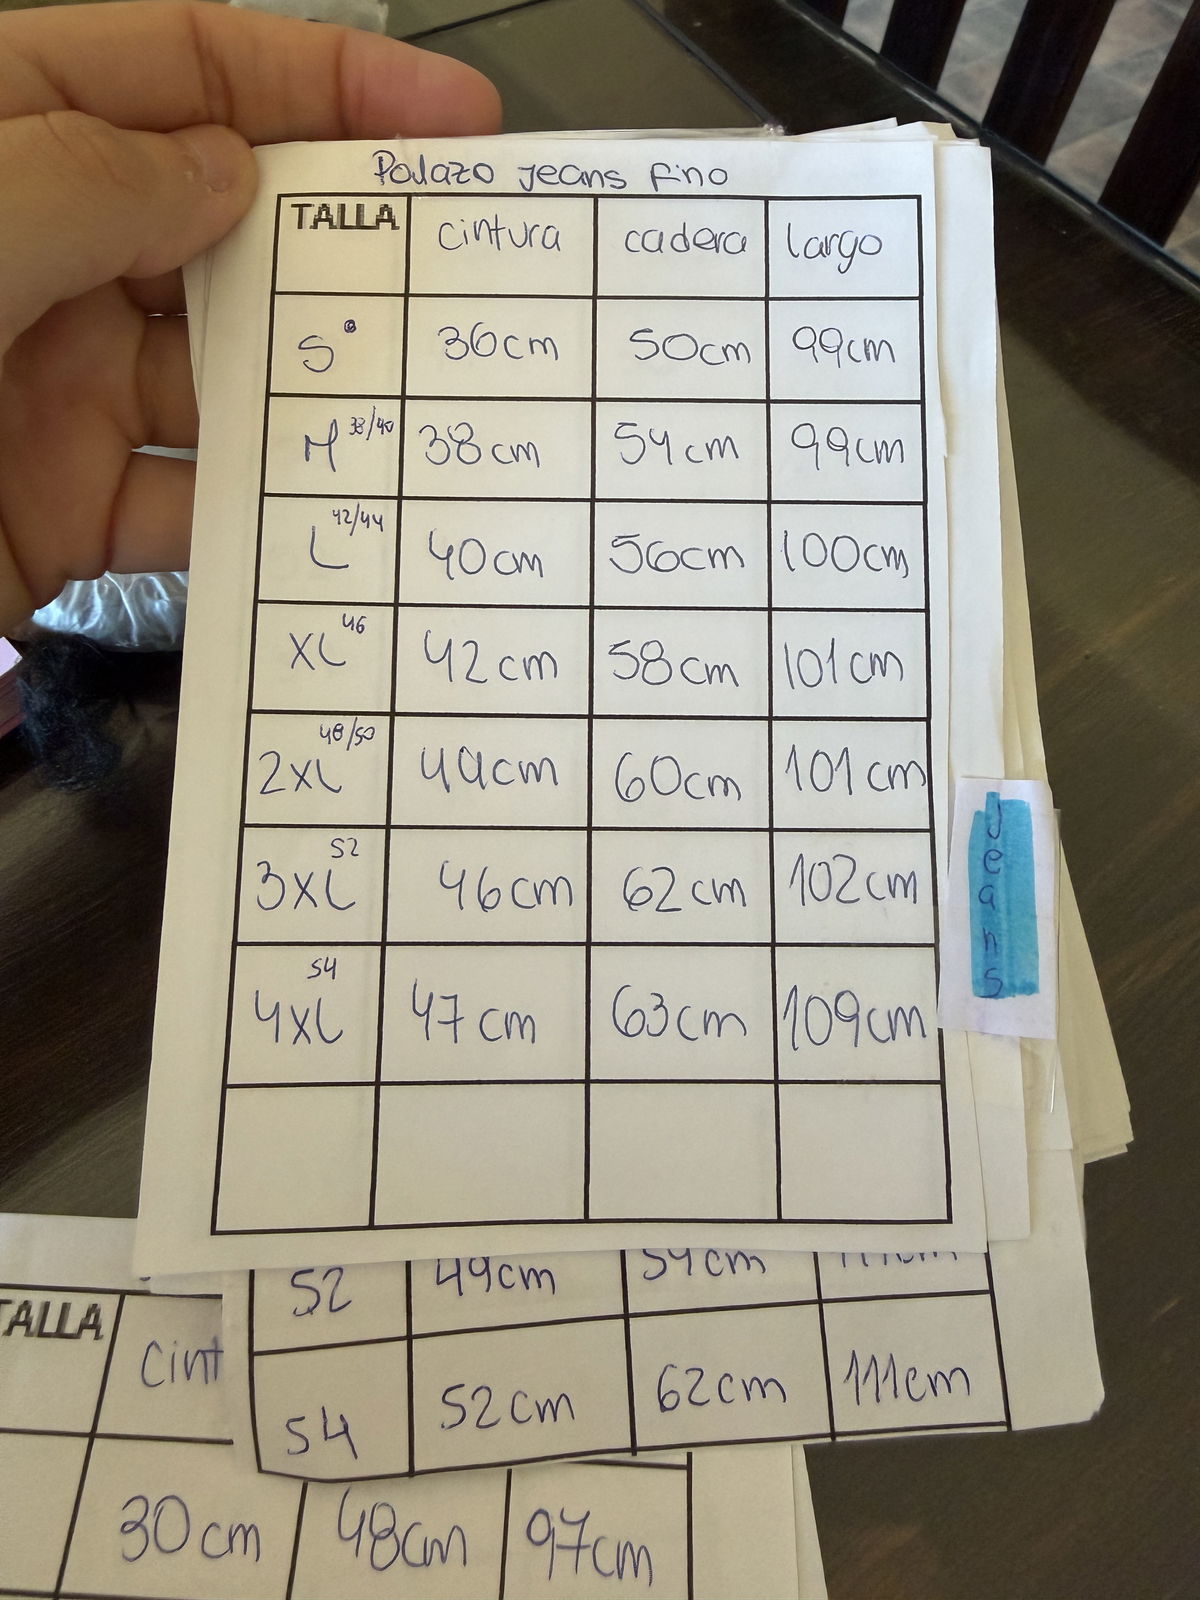 Palazo jeans fino
TALLA cintura cadera largo
S 36cm 50cm 99cm
M 38/40 38cm 54cm 99cm
L 42/44 40cm 56cm 100cm
XL 46 42cm 58cm 101cm
2XL 48/50 44cm 60cm 101cm
3XL 52 46cm 62cm 102cm
4XL 54 47cm 63cm 109cm
Jeans
52 49cm 59cm
54 52cm 62cm 111cm
TALLA cint
30cm 48cm 97cm